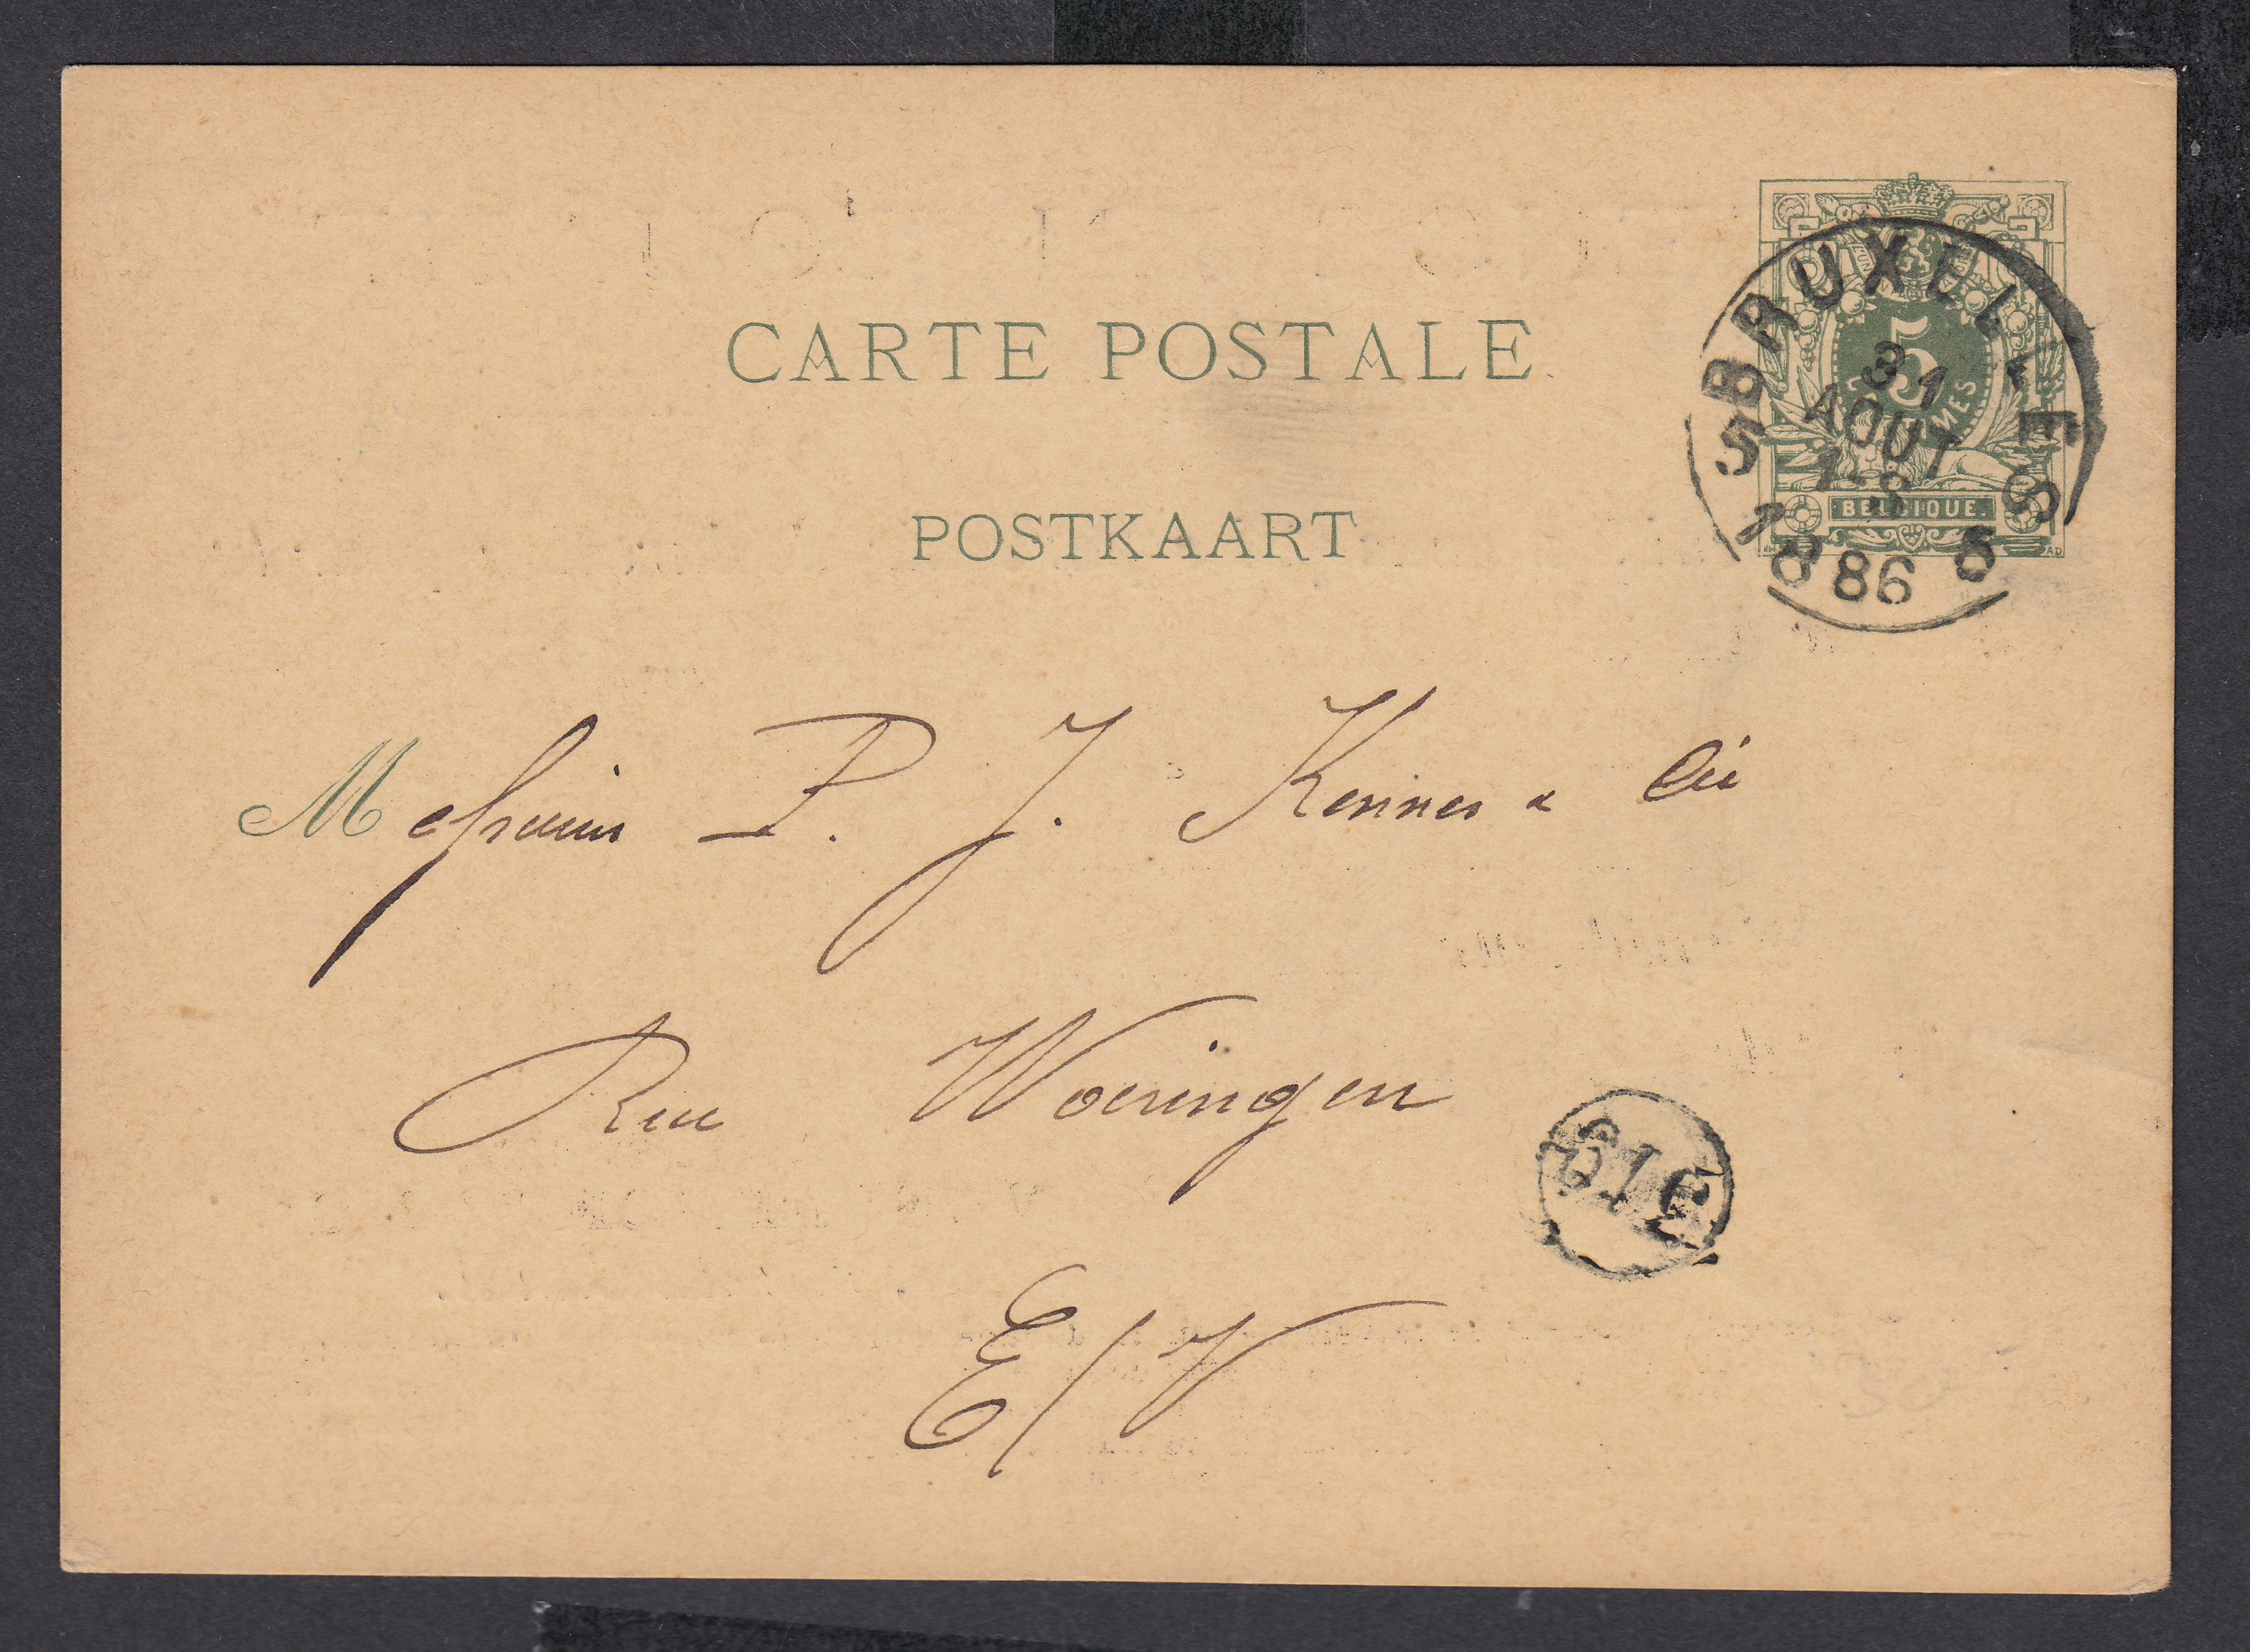 CARTE POSTALE
POSTKAART
5
CENTIMES
BELGIQUE.
BRUXELLES
31
AOUT
1-S
1886
5 5
Messieurs P. J. Kennes & Cie
Rue Woeringen
E/V